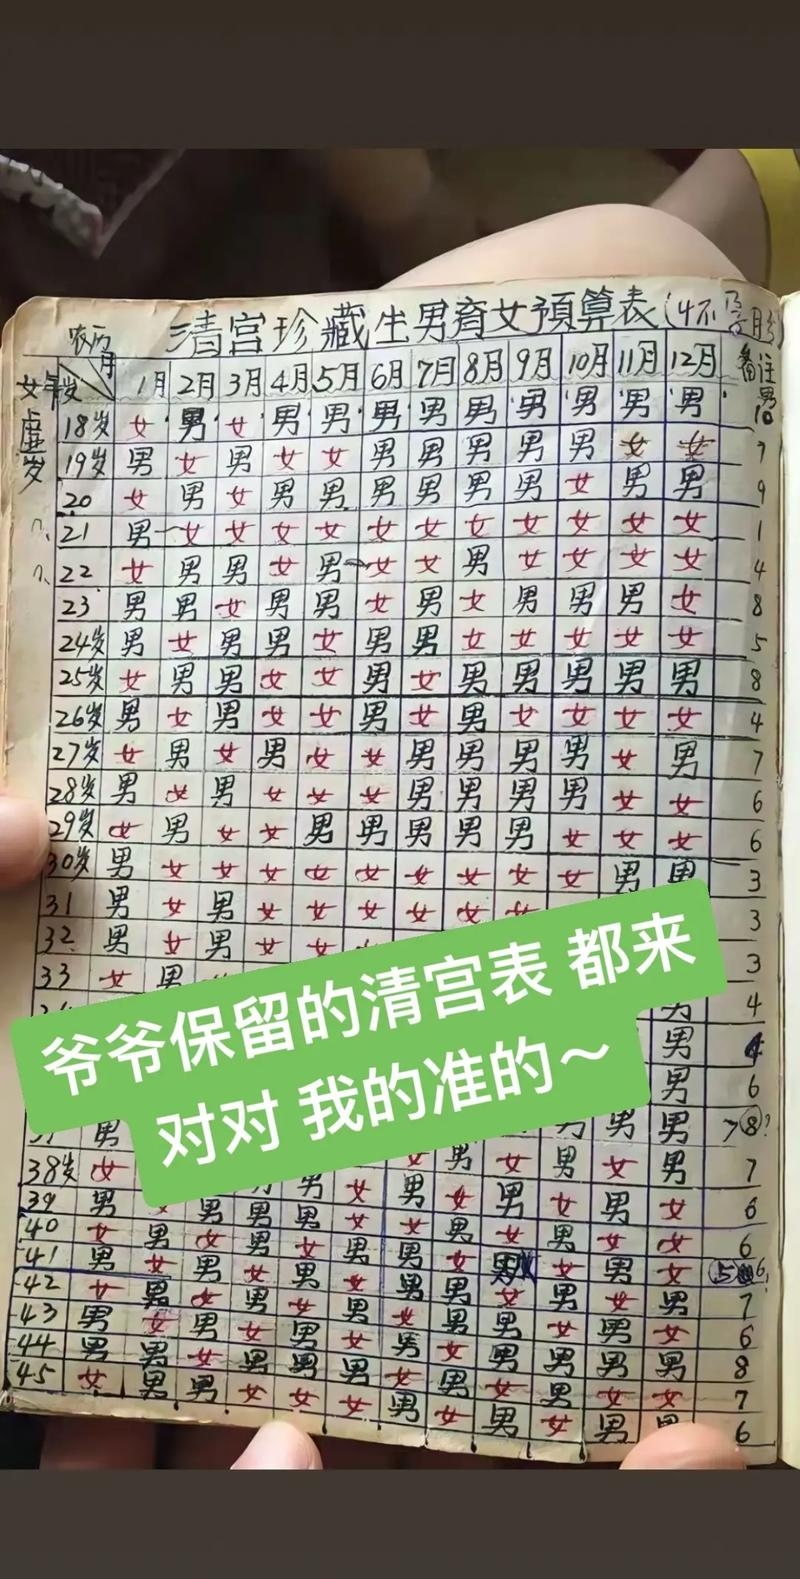 清宫珍藏生男育女預算表(4不孕月
农历 月 1月 2月 3月 4月 5月 6月 7月 8月 9月 10月 11月 12月 备注
女 岁 虚岁 男
18岁 女 男 女 男 男 男 男 男 男 男 男 男 10
19岁 男 女 男 女 女 男 男 男 男 男 女 女 7
20 女 男 女 男 男 男 男 男 男 女 男 男 9
21 男 女 女 女 女 女 女 女 女 女 女 女 1
22 女 男 男 女 男 女 女 男 女 女 女 女 4
23 男 男 女 男 男 女 男 女 男 男 男 女 8
24岁 男 女 男 男 女 男 男 女 女 女 女 女 5
25岁 女 男 男 女 女 男 女 男 男 男 男 男 8
26岁 男 女 男 女 女 男 女 男 女 女 女 女 4
27岁 女 男 女 男 女 女 男 男 男 男 女 男 7
28岁 男 女 男 女 女 女 男 男 男 男 女 女 6
29岁 女 男 女 女 男 男 男 男 男 女 女 女 6
30岁 男 女 女 女 女 女 女 女 女 女 男 男 3
31 男 女 男 女 女 女 女 女 女 3
32 男 女 男 女 女 3
33 女 男 3
男 4
男 4
男 6
男 男 男 男 7 8?
女 男 女 男 女 男 7
38岁 女 男 女 男 女 男 女 男 女 6
39 男 男 男 男 女 女 男 女 男 女 女 6
40 女 男 女 男 女 男 男 女 男 女 男 女 5 6
41 男 女 男 女 男 女 男 男 女 男 女 男 7
42 女 男 女 男 女 男 女 男 男 女 男 女 6
43 男 女 男 女 男 女 男 女 男 男 男 男 8
44 男 男 女 男 男 男 女 男 女 男 女 女 7
45 女 男 男 女 女 女 男 女 男 女 男 男 6
爷爷保留的清宫表 都来
对对 我的准的～